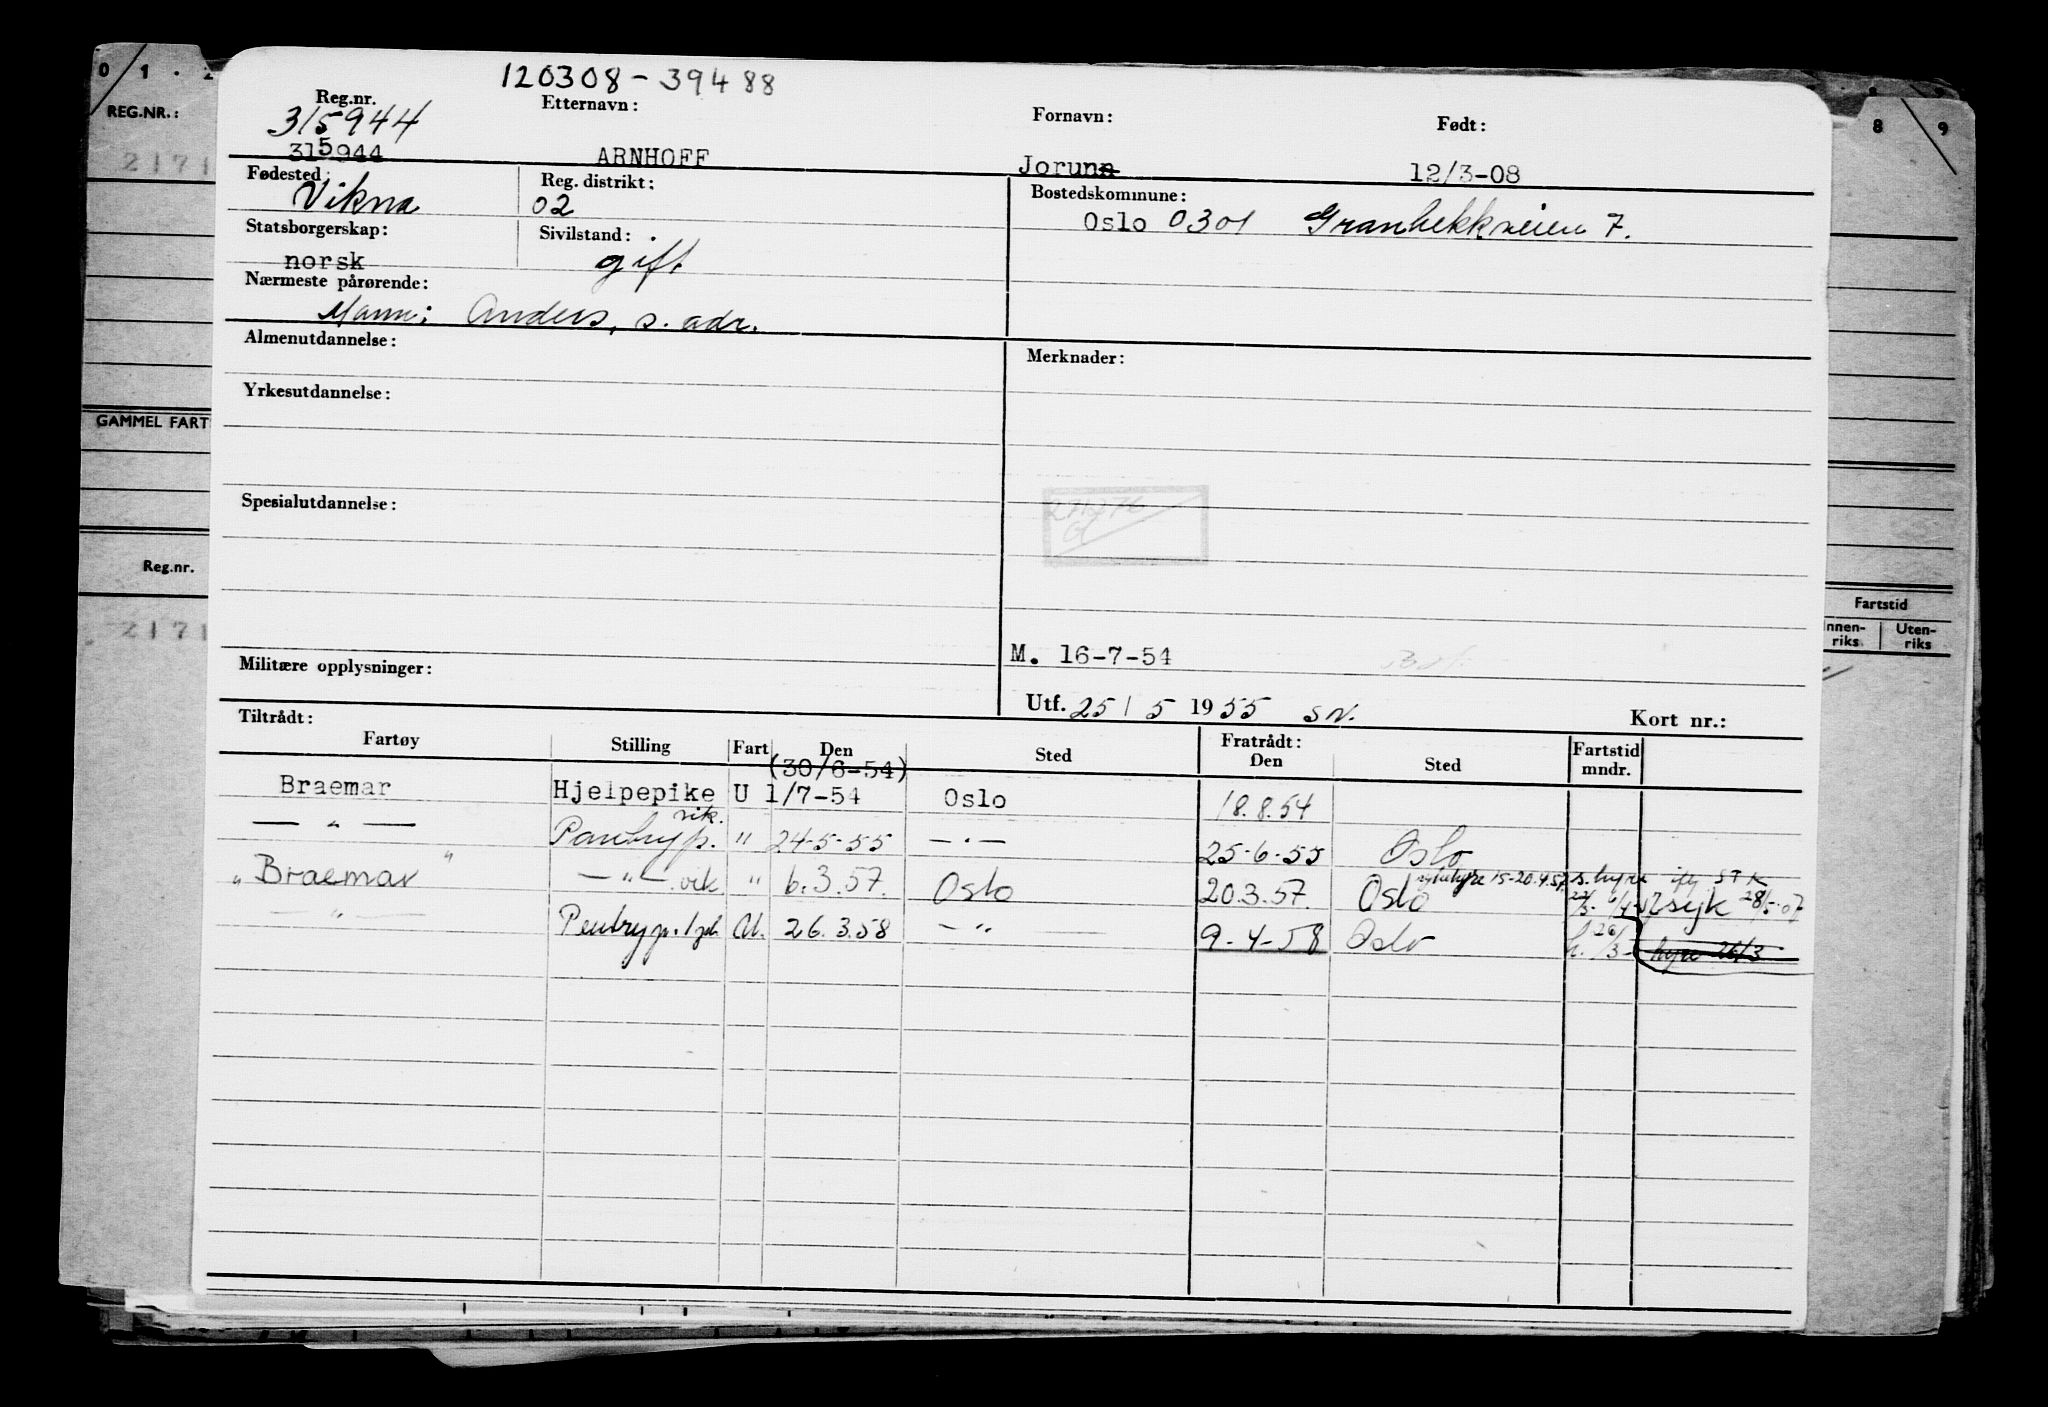 0 1 . 2
REG.NR.:
2171
GAMMEL FART
Reg.nr.
2171
120308-39488
Reg.nr. Etternavn: Fornavn: Født:
315944
315944 ARNHOFF Jorunn 12/3-08
Fødested: Reg. distrikt: Bostedskommune:
Vikna 02 Oslo 0301 Granbekkveien 7.
Statsborgerskap: Sivilstand:
norsk gift
Nærmeste pårørende:
Mann: Anders, s. adr.
Almenutdannelse: Merknader:
Yrkesutdannelse:
Spesialutdannelse:
M. 16-7-54
Militære opplysninger:
Utf. 25/5 1955 SN. Kort nr.:
Tiltrådt: Fratrådt:
Fartøy Stilling Fart Den Sted Den Sted Fartstid mndr.
(30/6-54)
Braemar Hjelpepike U 1/7-54 Oslo 18.8.54
— " — Pantryp. vik. " 24-5-55 — " — 25-6-55 Oslo
" Braemar " — " — vik " 6.3.57. Oslo 20.3.57. Oslo sykehyre 15-20.4.57. syk 28/5-57
— " — Pentryp. U. 26.3.58 — " — 9-4-58 Oslo h. 26/3- hyre 26/3
8 9
Fartstid
Innen-riks Uten-riks